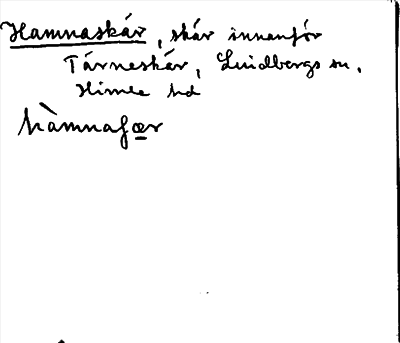 Hamnaskär, skär innanför
Tärneskär, Lindbergs sn,
Himle hd
hàmnaʃær